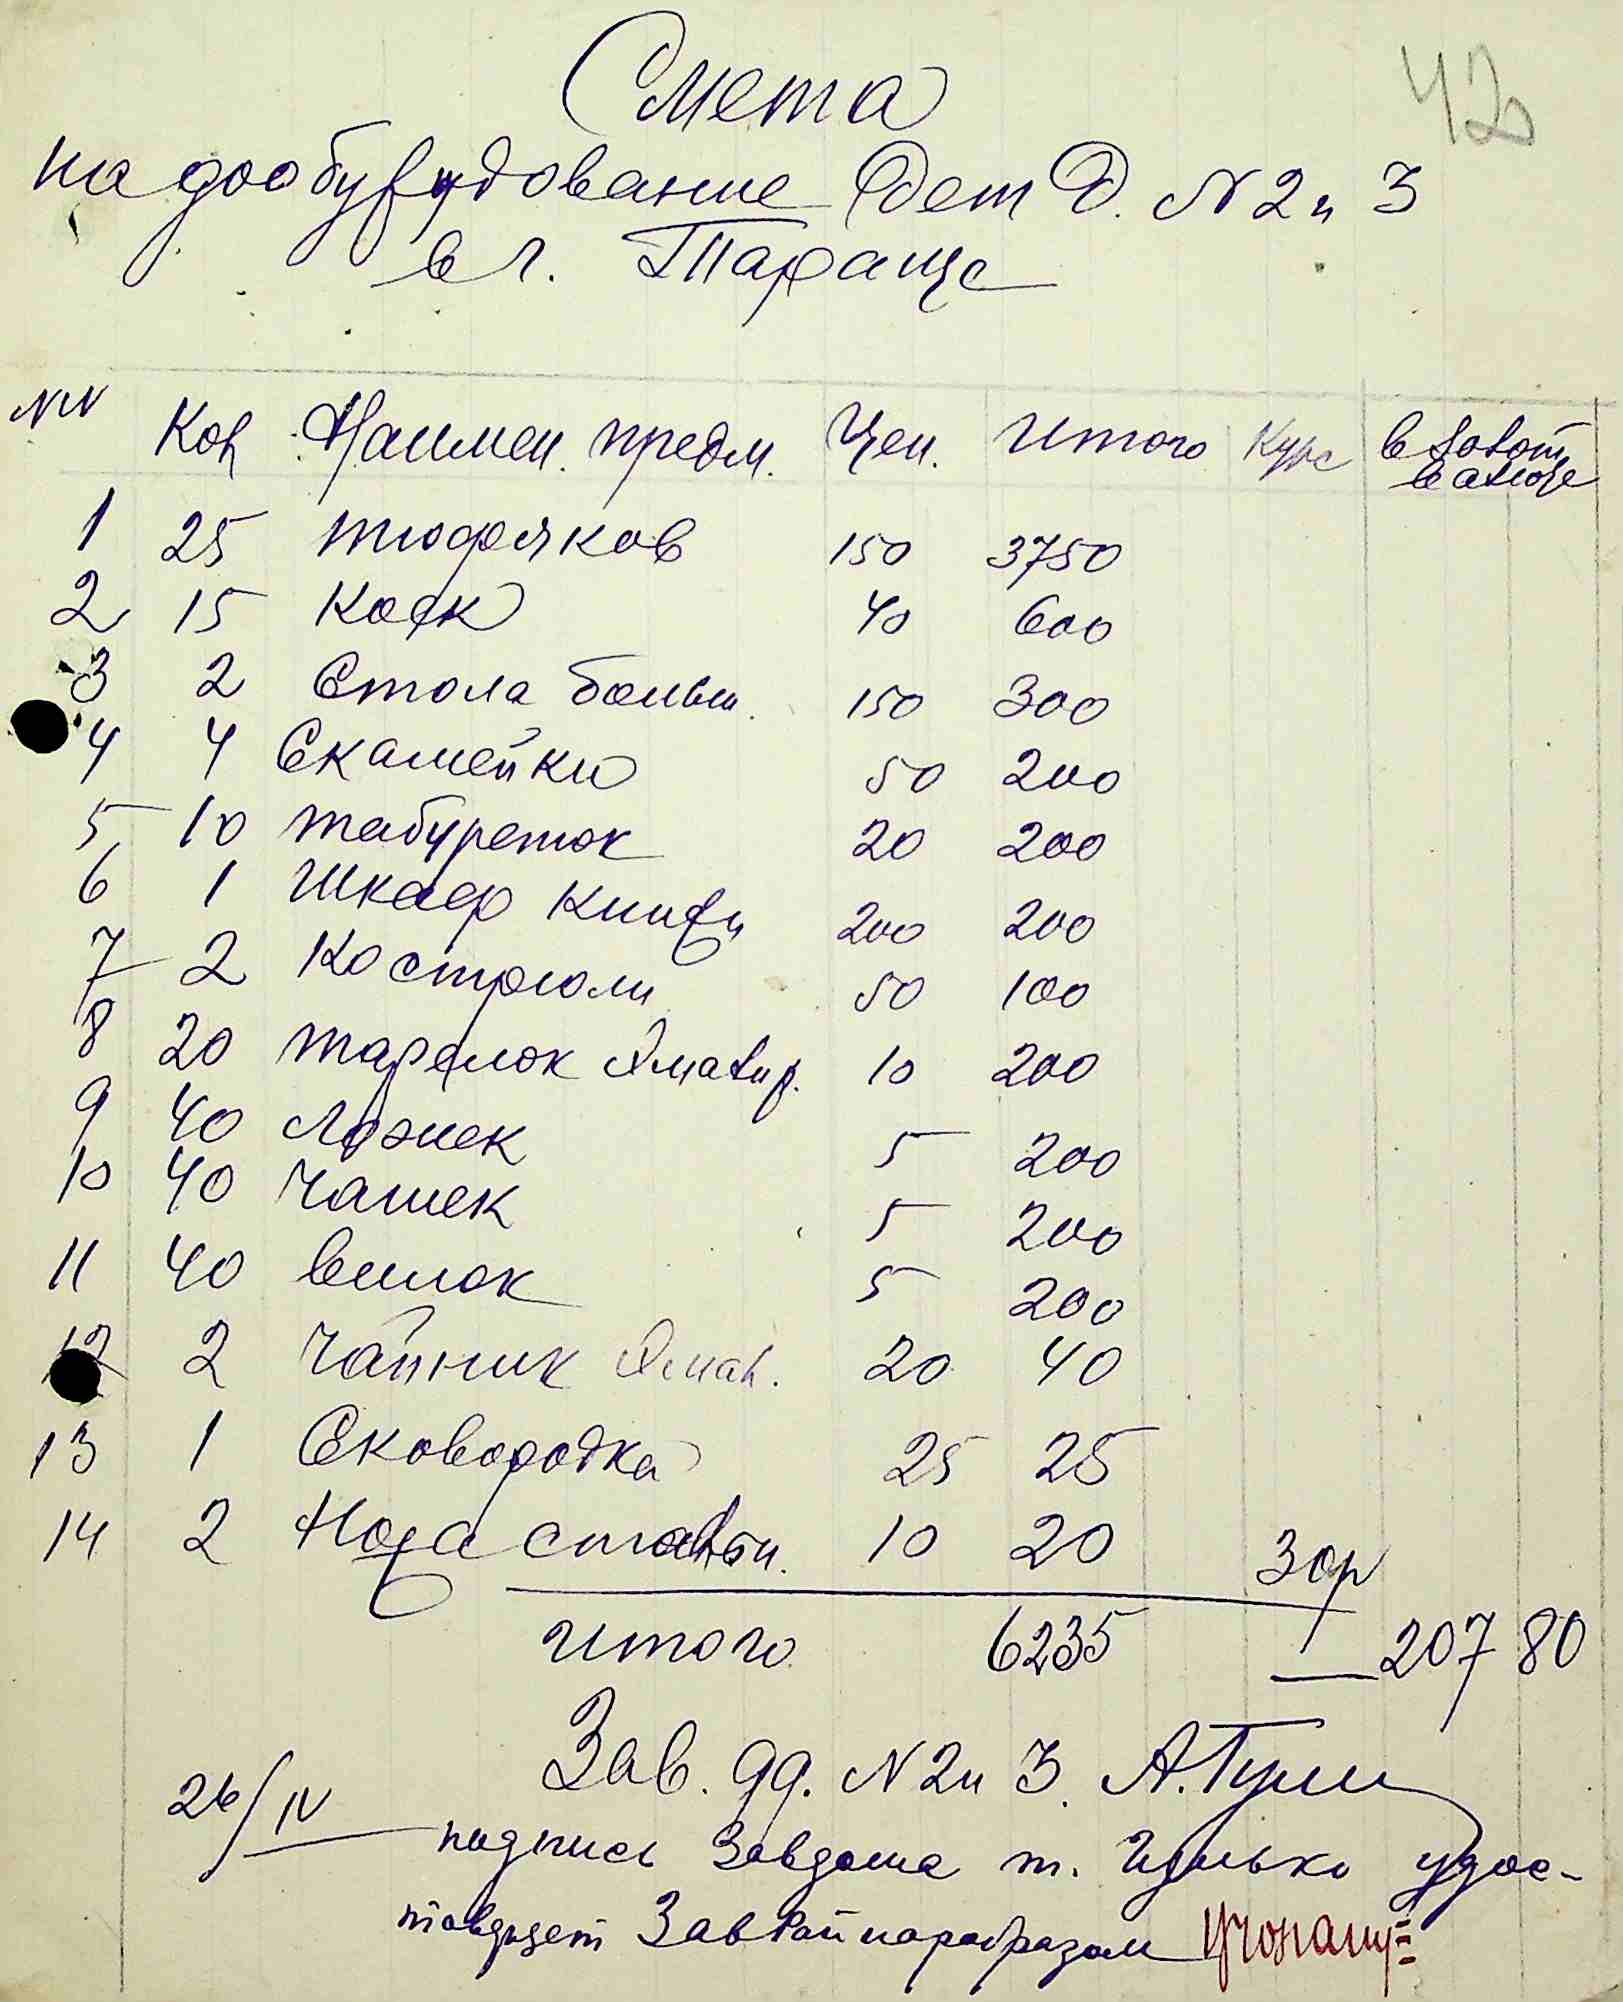 42
Смета
на дообурудование Дет Д. N 2 и 3
в г. Тараще
NN Кол Наимен. предм. Цен. Итого Курс в золот валюте
1 25 тюфяков 150 3750
2 15 коек 40 600
3 2 Стола больш. 150 300
4 4 Скамейки 50 200
5 10 табуреток 20 200
6 1 Шкаф книжн 200 200
7 2 Кострюли 50 100
8 20 тарелок Эмалир. 10 200
9 40 Ложек 5 200
10 40 Чашек 5 200
11 40 вилок 5 200
12 2 Чайник Эмал. 20 40
13 1 Сковородка 25 25
14 2 Ножа столов. 10 20
30р
Итого 6235 — 207 80
Зав. дд. N 2 и 3.
26/IV
подпись Завдома т. удос-
товеряет Зав Райнаробразом